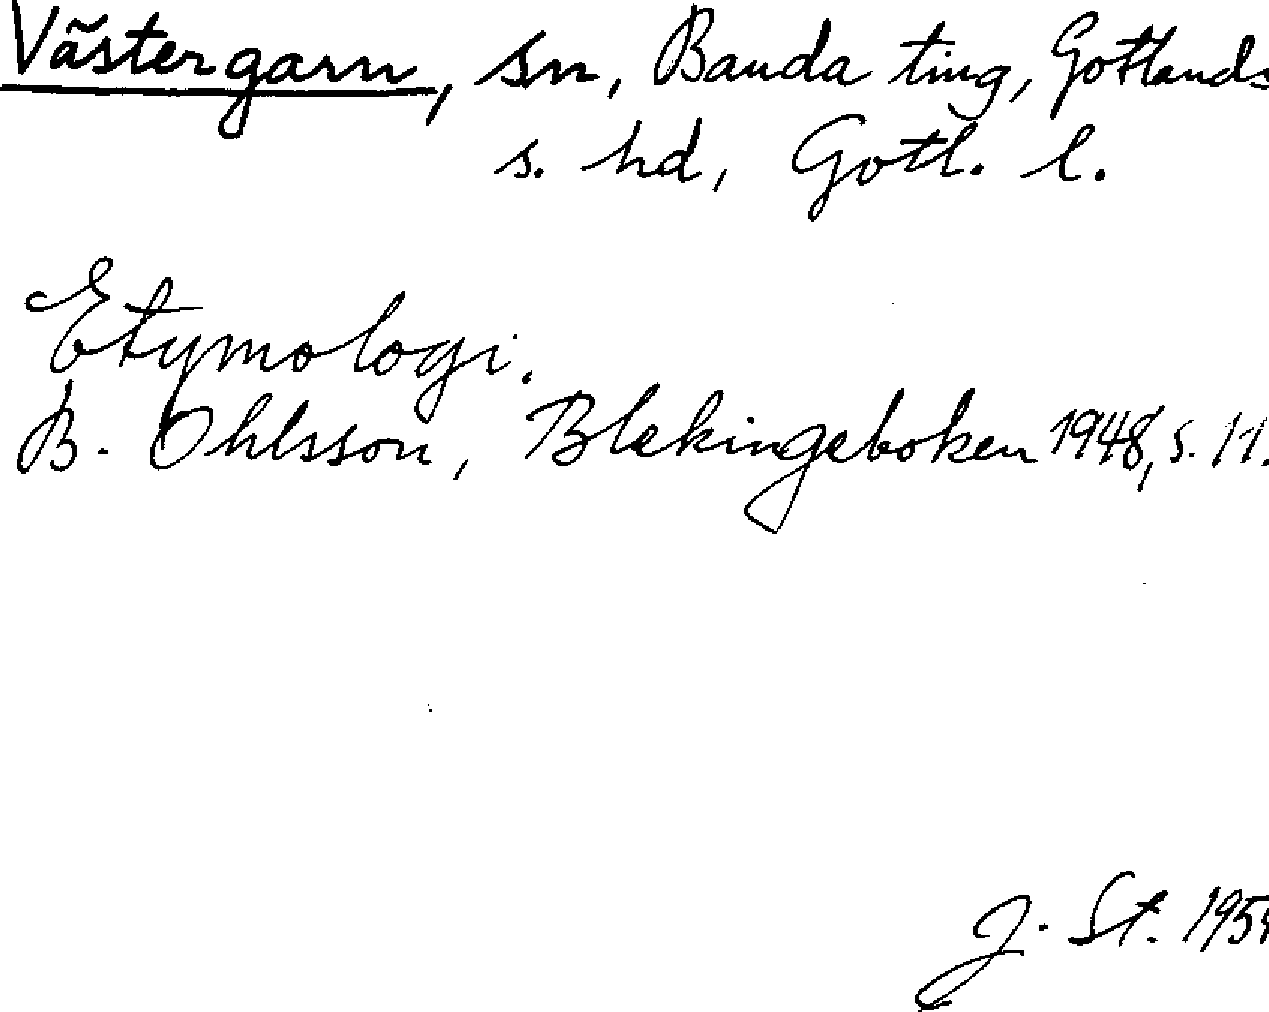 Västergarn, sn, Banda ting, Gotlands
s. hd, Gotl. l.
Etymologi.
B. Ohlsson, Blekingeboken 1948, s. 11.
J. St.